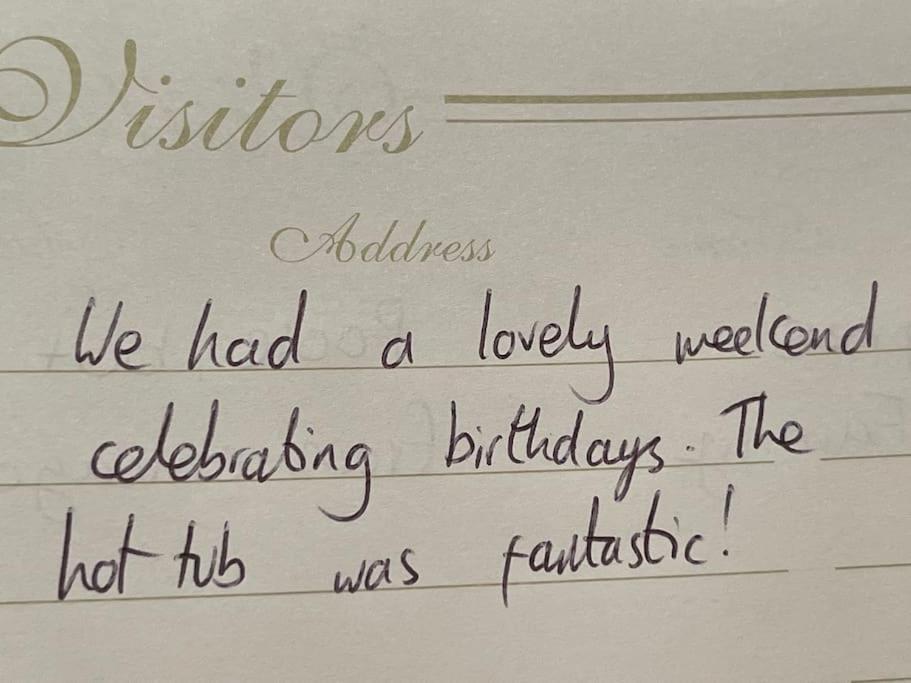 Visitors
Address
We had a lovely weekend
celebrating birthdays. The
hot tub was fantastic!